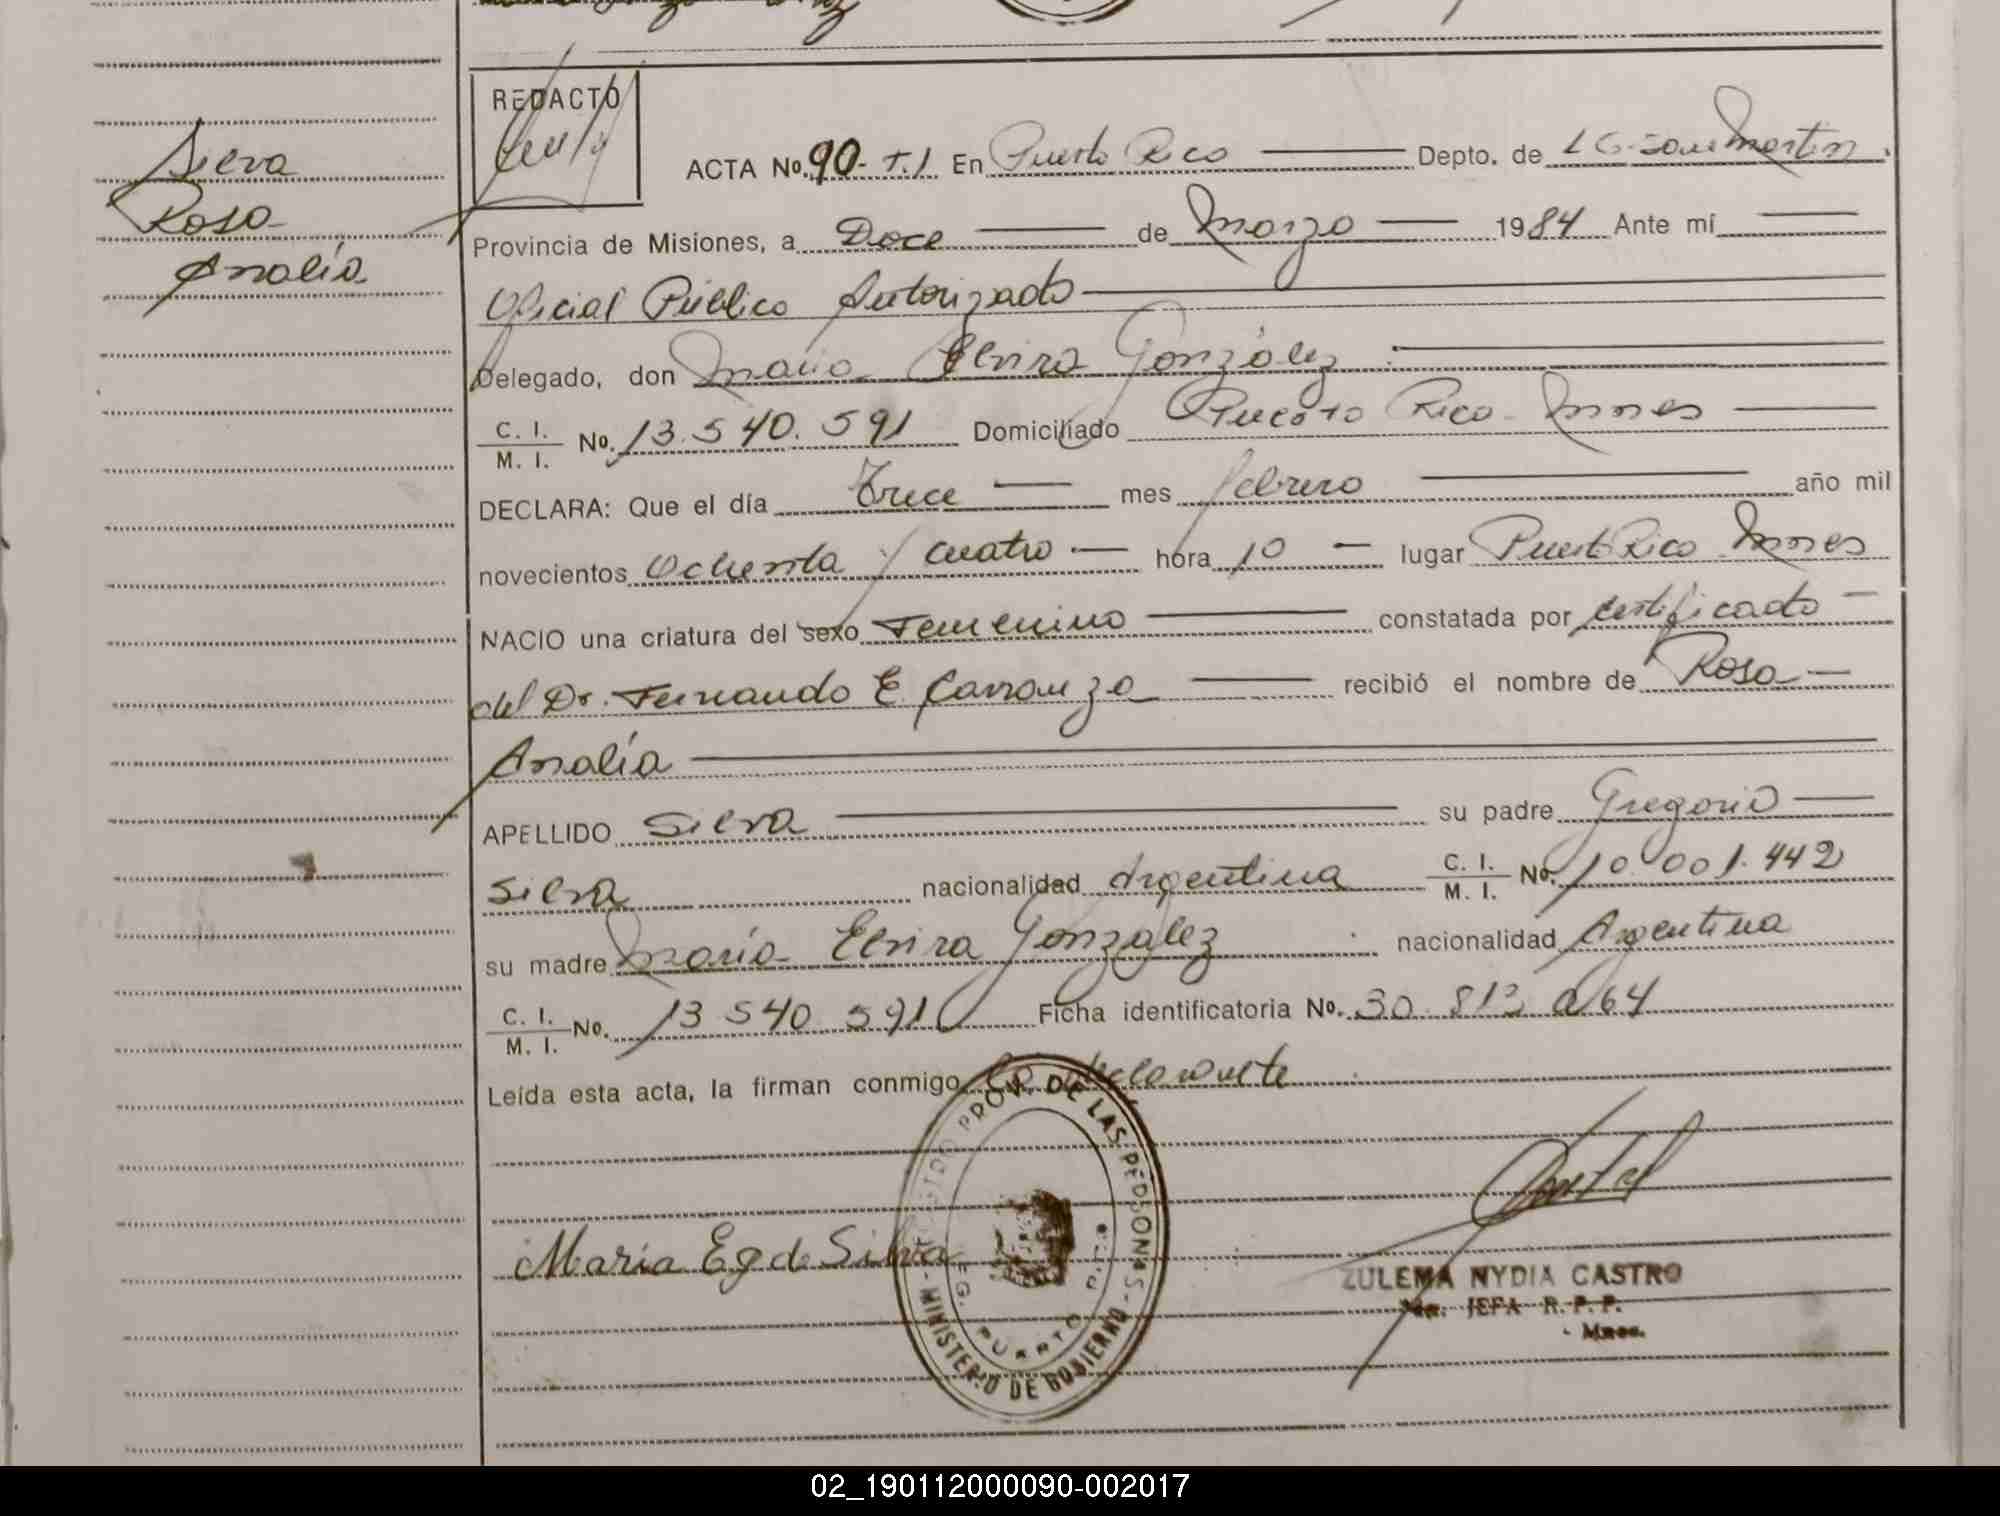 Silva
Rosa
Analía
REDACTÓ
ACTA No. 90- T.I En Puerto Rico Depto. de L G. San Martín.
Provincia de Misiones, a Doce de Marzo 1984 Ante mí
Oficial Público Autorizado
Delegado, don María Elvira González
C. I. / M. I. No. 13.540.591 Domiciliado Puerto Rico Mnes
DECLARA: Que el día Trece mes febrero año mil
novecientos Ochenta y cuatro hora 10 lugar Puerto Rico Mnes
NACIO una criatura del sexo Femenino constatada por certificado
del Dr. Fernando E. Carranza recibió el nombre de Rosa
Analía
APELLIDO Silva su padre Gregorio
Silva nacionalidad Argentina C. I. / M. I. No. 10.001.442
su madre María Elvira González nacionalidad Argentina
C. I. / M. I. No. 13 540 591 Ficha identificatoria No. 30 813 064
Leída esta acta, la firman conmigo La declarante
PROV. DE LAS PERSONAS - MINISTERIO DE GOBIERNO
PUERTO
María E g de Silva
ZULEMA NYDIA CASTRO
JEFA R. P. P.
Mnes.
02_190112000090-002017